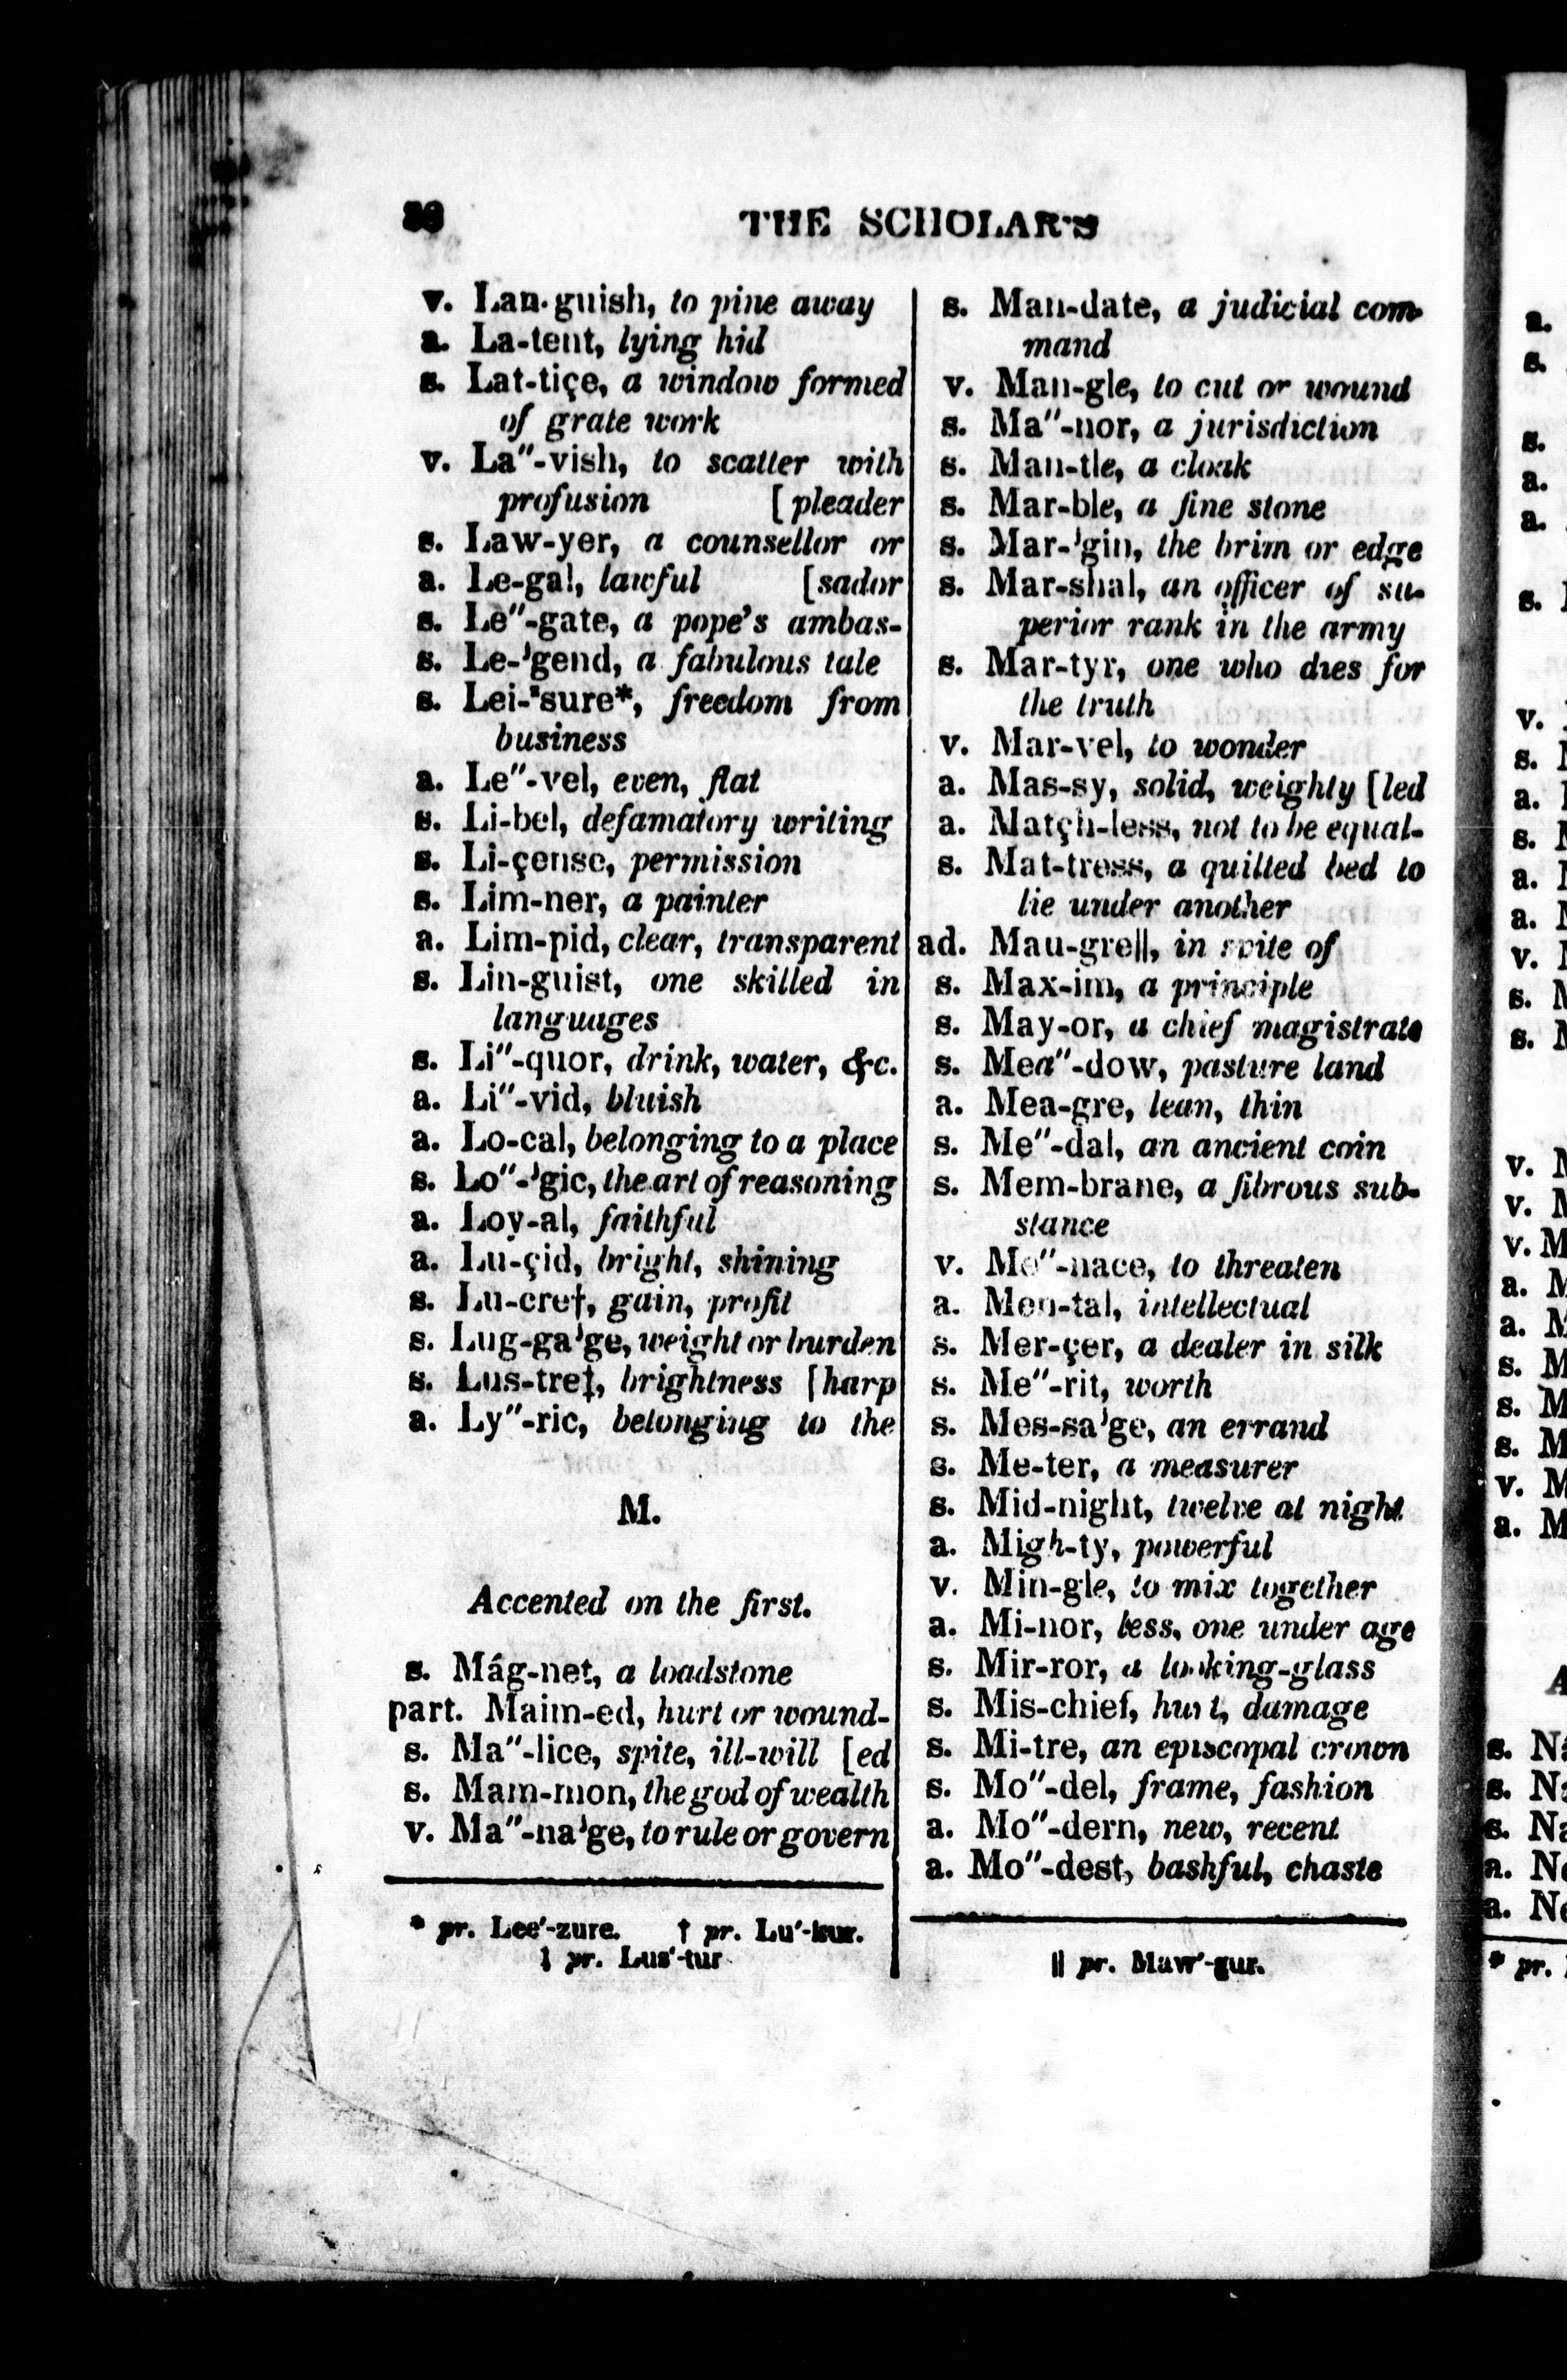 THE SCHOLAR'S
v. Lan-guish, to pine away
a. La-tent, lying hid
s. Lat-tiçe, a window formed
of grate work
v. La"-vish, to scatter with
profusion [pleader
s. Law-yer, a counsellor or
a. Le-gal, lawful [sador
s. Le"-gate, a pope's ambas-
s. Le-ʲgend, a fabulous tale
s. Lei-ᶻsure*, freedom from
business
a. Le"-vel, even, flat
s. Li-bel, defamatory writing
s. Li-çense, permission
s. Lim-ner, a painter
a. Lim-pid, clear, transparent
s. Lin-guist, one skilled in
languages
s. Li"-quor, drink, water, &c.
a. Li"-vid, bluish
a. Lo-cal, belonging to a place
s. Lo"-ʲgic, the art of reasoning
a. Loy-al, faithful
a. Lu-çid, bright, shining
s. Lu-cre†, gain, profit
s. Lug-gaʲge, weight or burden
s. Lus-tre‡, brightness [harp
a. Ly"-ric, belonging to the
M.
Accented on the first.
s. Mág-net, a loadstone
part. Maim-ed, hurt or wound-
s. Ma"-lice, spite, ill-will [ed
s. Mam-mon, the god of wealth
v. Ma"-naʲge, to rule or govern
* pr. Lee'-zure. † pr. Lu'-kur.
‡ pr. Lus'-tur
s. Man-date, a judicial com-
mand
v. Man-gle, to cut or wound
s. Ma"-nor, a jurisdiction
s. Man-tle, a cloak
s. Mar-ble, a fine stone
s. Mar-ʲgin, the brim or edge
s. Mar-shal, an officer of su-
perior rank in the army
s. Mar-tyr, one who dies for
the truth
v. Mar-vel, to wonder
a. Mas-sy, solid, weighty [led
a. Matçh-less, not to be equal-
s. Mat-tress, a quilted bed to
lie under another
ad. Mau-gre||, in spite of
s. Max-im, a principle
s. May-or, a chief magistrate
s. Mea"-dow, pasture land
a. Mea-gre, lean, thin
s. Me"-dal, an ancient coin
s. Mem-brane, a fibrous sub-
stance
v. Me"-nace, to threaten
a. Men-tal, intellectual
s. Mer-çer, a dealer in silk
s. Me"-rit, worth
s. Mes-saʲge, an errand
s. Me-ter, a measurer
s. Mid-night, twelve at night
a. Migh-ty, powerful
v. Min-gle, to mix together
a. Mi-nor, less, one under age
s. Mir-ror, a looking-glass
s. Mis-chief, hurt, damage
s. Mi-tre, an episcopal crown
s. Mo"-del, frame, fashion
a. Mo"-dern, new, recent
a. Mo"-dest, bashful, chaste
|| pr. Maw'-gur.